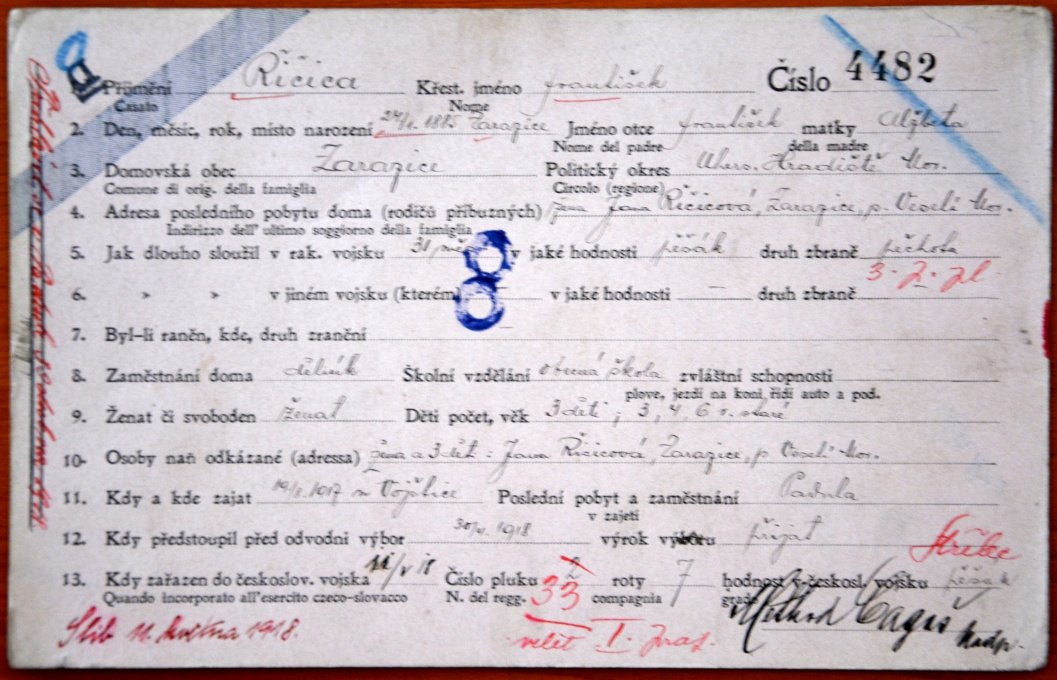 1. Příjmení Řičica Křest. jméno František Číslo 4482
Casato Nome
2. Den, měsíc, rok, místo narození 1885 Zarazice Jméno otce František matky Alžběta
Nome del padre della madre
3. Domovská obec Zarazice Politický okres Uhers. Hradiště Mor.
Comune di orig. della famiglia Circolo (regione)
4. Adresa posledního pobytu doma (rodičů příbuzných) žena Jana Řičicová, Zarazice, p. Veselí Mor.
Indirizzo dell' ultimo soggiorno della famiglia
5. Jak dlouho sloužil v rak. vojsku 31 v jaké hodnosti pěšák druh zbraně pěchota
8
6. » » v jiném vojsku (kterém) v jaké hodnosti — druh zbraně —
7. Byl-li raněn, kde, druh zranění
8. Zaměstnání doma dělník Školní vzdělání obecná škola zvláštní schopnosti
plove, jezdí na koni, řídí auto a pod.
9. Ženat či svoboden ženat Děti počet, věk 3 děti, 3, 4, 6 r. staré
10. Osoby naň odkázané (adressa) žena a 3 děti: Jana Řičicová, Zarazice, p. Veselí Mor.
11. Kdy a kde zajat 1917 Poslední pobyt a zaměstnání Padula
v zajetí
12. Kdy předstoupil před odvodní výbor 1918 výrok výboru přijat
Střelec
13. Kdy zařazen do českoslov. vojska 11/V 18 Číslo pluku 2 33 roty 7 hodnost v českosl. vojsku pěšák
Quando incorporato all'esercito czeco-slovacco N. del regg. compagnia grado
Slib 11. května 1918. I.